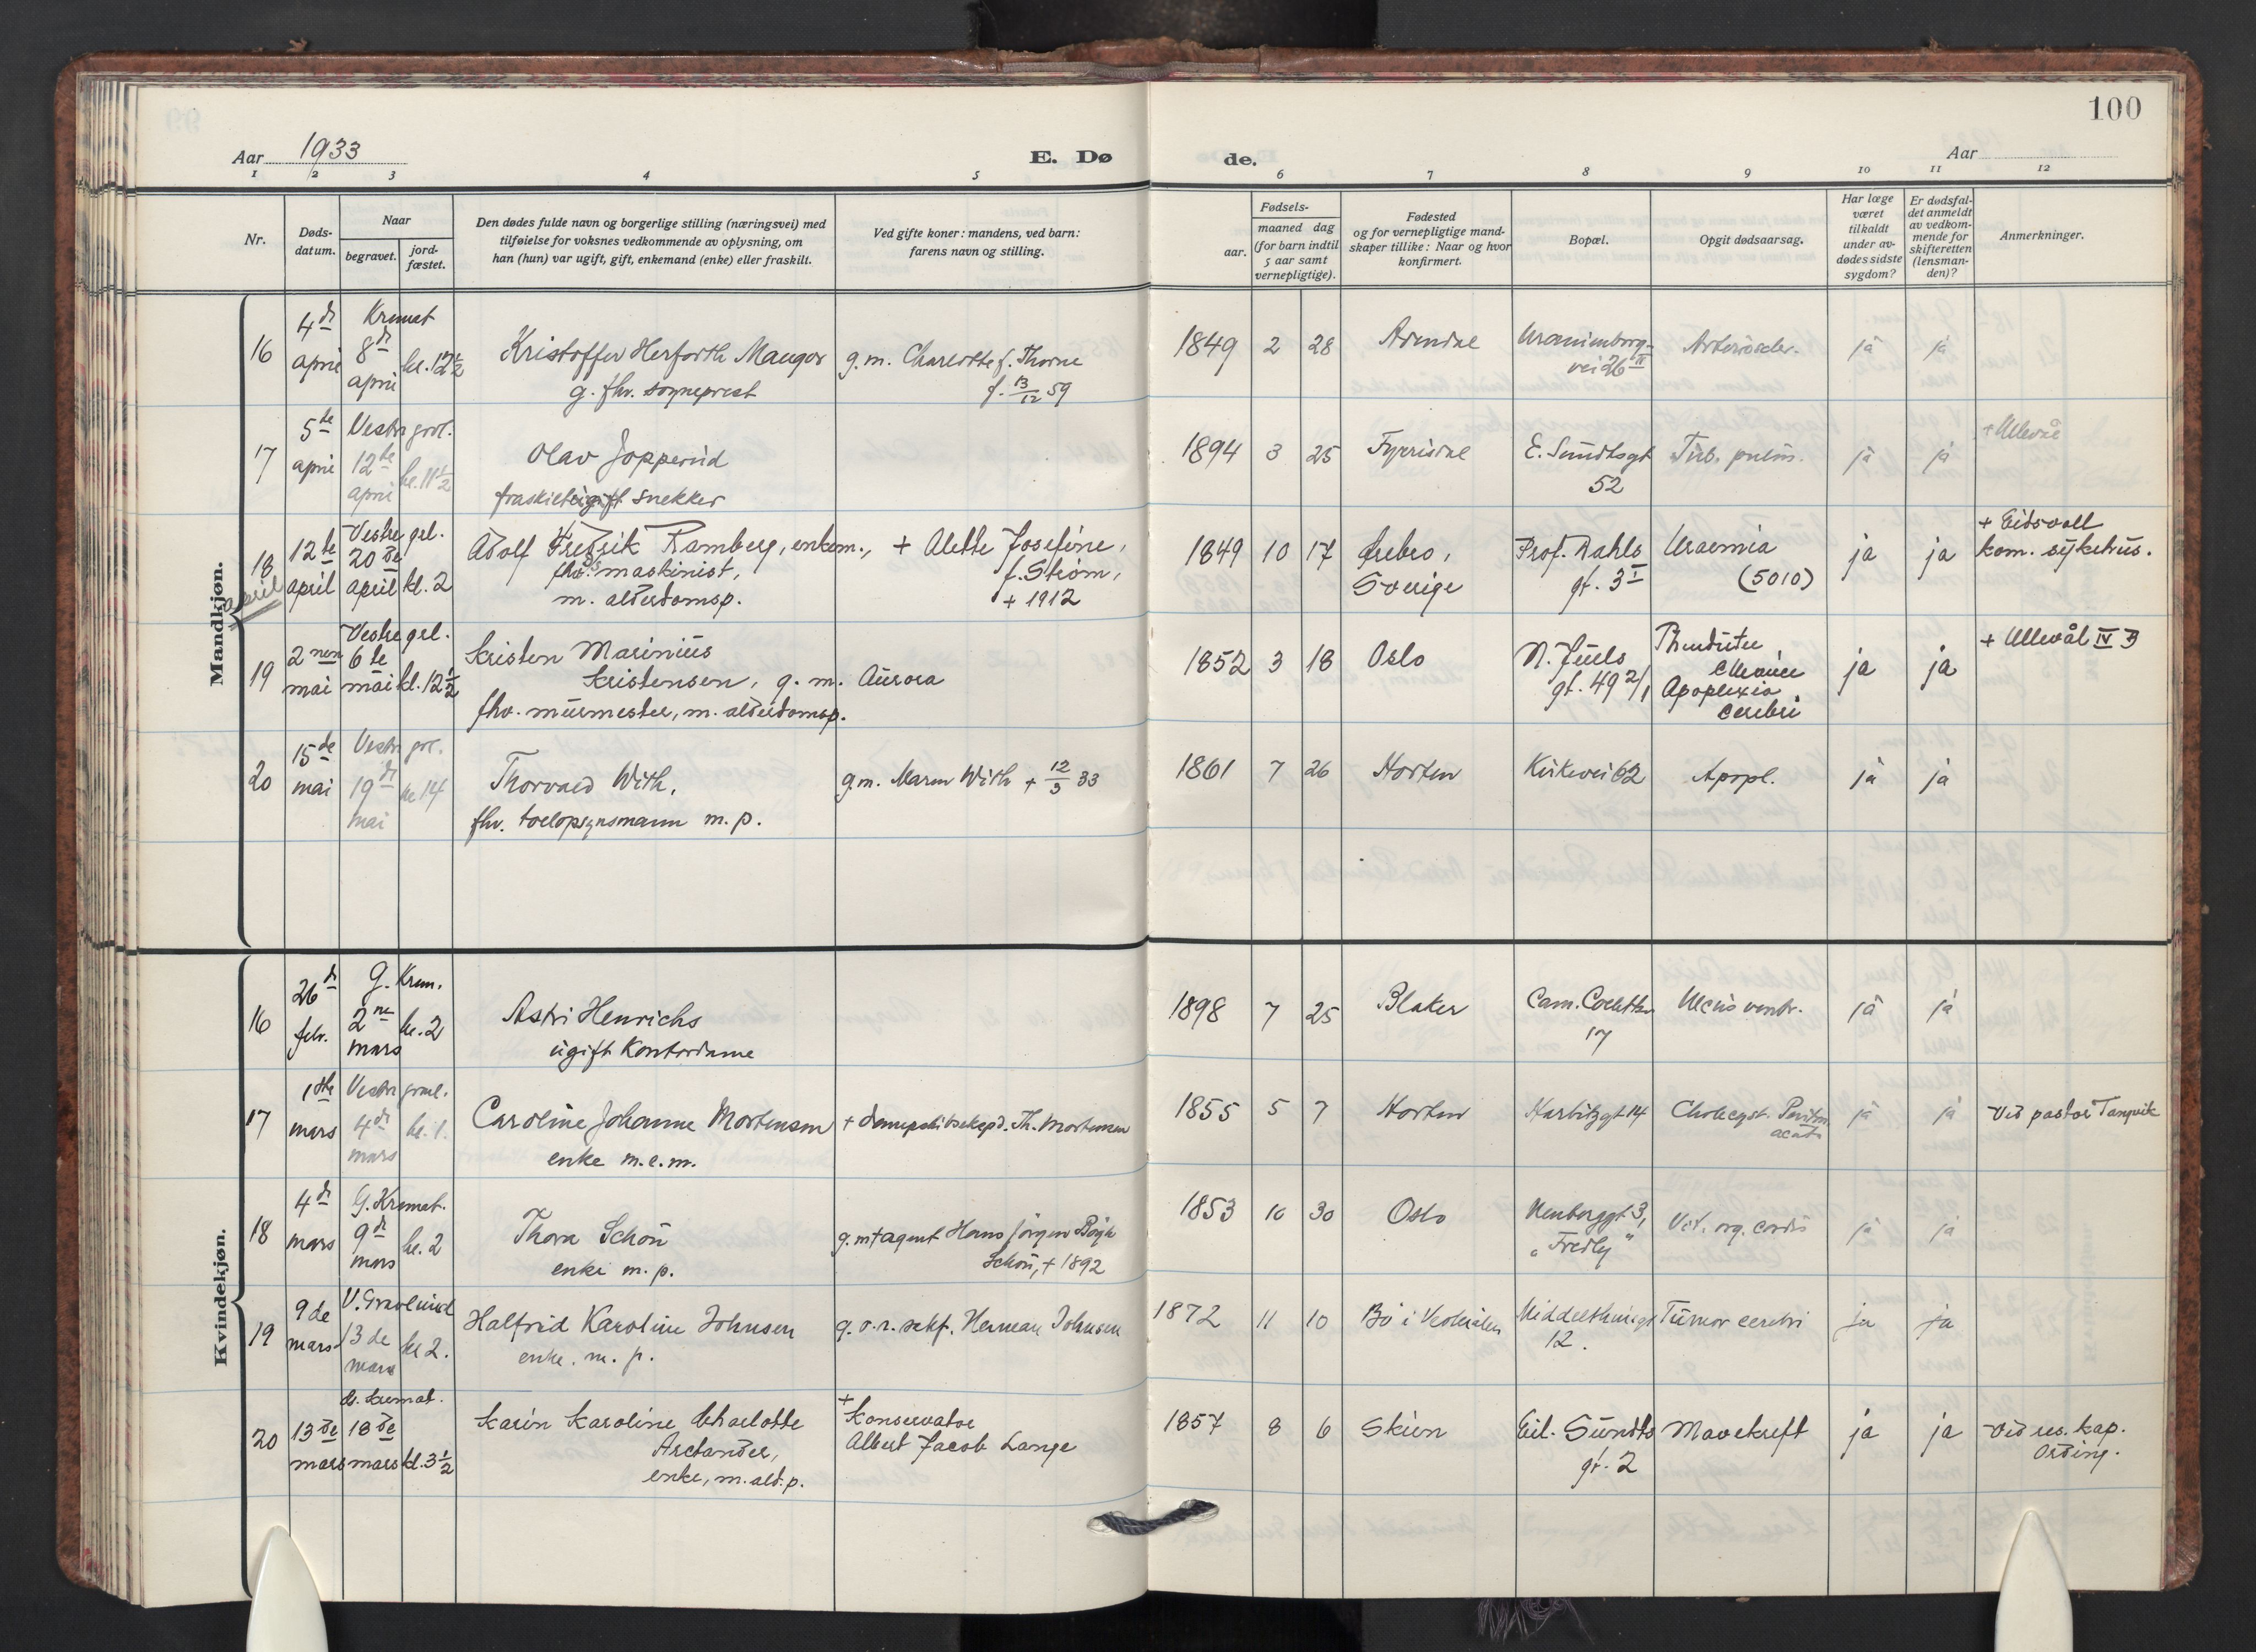 100
Aar 1933
E. Dø
de.
Aar
1 2 3 4 5 6 7 8 9 10 11 12
Nr.
Døds-
datum.
Naar
begravet.
jord-
fæstet.
Den dødes fulde navn og borgerlige stilling (næringsvei) med
tilføielse for voksnes vedkommende av oplysning, om
han (hun) var ugift, gift, enkemand (enke) eller fraskilt.
Ved gifte koner: mandens, ved barn:
farens navn og stilling.
Fødsels-
aar.
maaned dag
(for barn indtil
5 aar samt
vernepligtige).
Fødested
og for vernepligtige mand-
skaper tillike: Naar og hvor
konfirmert.
Bopæl.
Opgit dødsaarsag.
Har læge
været
tilkaldt
under av-
dødes sidste
sygdom?
Er dødsfal-
det anmeldt
av vedkom-
mende for
skifteretten
(lensman-
den)?
Anmerkninger.
Mandkjøn.
april
16
4de
april
Kremat
8de
april
kl. 12½
Kristoffer Herforth
g. fhv. sogneprest
g. m. Charlotte f. Thorne
f. 13/12 59
1849 2 28
Arendal
Uranienborg-
vei 26 IV
Arterioscler.
ja ja
17
5te
april
Vestre grvl.
12te
april
kl. 11½
Olav
fraskilt snekker
1894 3 25
Fyrisdal
E. Sundtsgt
52
Tub. pulm.
ja ja
+ Ullevål
18
12te
april
Vestre grl.
20de
april
kl. 2
Adolf Fredrik Ramberg, enkem.,
fhv. maskinist,
m. alderdomsp.
+ Alette Josefine,
f. Strøm,
+ 1912
1849 10 17
Ørebro,
Sverige
Prof. Dahls
gt. 3 I
Uraemia
(5010)
ja ja
+ Eidsvoll
kom. sykehus.
19
2nen
mai
Vestre grl.
6te
mai
kl. 12½
Kristen Marinius
Kristensen, g. m.
fhv. murmester, m. alderdomsp.
Aurora
1852 3 18
Oslo
N. Juels
gt. 49 2/1
Apoplexia
cerebri
ja ja
+ Ullevål IV
20
15de
mai
Vestre grl.
19de
mai
kl 14
Thorvald With,
fhv. tollopsynsmann m. p.
g. m. Maren With + 12/3 33
1861 7 26
Horten
Kirkevei 62
Apopl.
ja ja
Kvindekjøn.
16
26de
febr.
G. Krem.
2ne
mars
kl. 2
Astri Henrichs
ugift Kontordame
1898 7 25
Blaker
Cam. Collettsv
17
Ulcus ventr.
ja ja
17
1ste
mars
Vestre gravl.
4de
mars
kl. 1.
Caroline Johanne Mortensen
enke m. e. m.
Th. Mortensen
1855 5 7
Horten
Harbitzgt 14
Cholecyst. Periton.
acuta
ja ja
Ved pastor Tanpvik
18
4de
mars
G. Kremat.
9de
mars
kl. 2
Thora Schou
enke m. p.
g. m + agent Hans Jørgen
Schou, + 1892
1853 10 30
Oslo
3,
"Fredly"
Vit. org. cordis
ja ja
19
9de
mars
V. Gravlund
13de
mars
kl 2.
Halfrid Karoline Johnsen
enke. m. p.
g. o. r. sakf. Herman Johnsen
1872 11 10
Bø i Vesterålen
Middelthunsgt
12.
Tumor cerebri
ja ja
20
13de
mars
G. Kremat.
18de
mars
kl. 3½
Karin Karoline Charlotte
Arctander,
enke, m. ald. p.
+
Konservator
Albert Jacob Lange
1857 8 6
Skien
Eil. Sundts
gt. 2
Mavekreft
ja ja
Ved res. kap.
Ording.